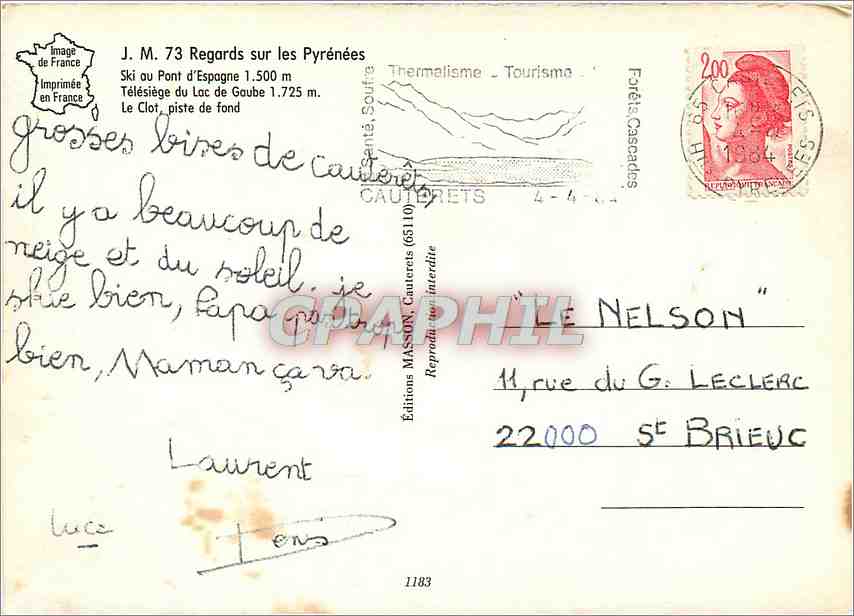 Image
de France
Imprimée
en France
J. M. 73 Regards sur les Pyrénées
Ski au Pont d'Espagne 1.500 m
Télésiège du Lac de Gaube 1.725 m.
Le Clot, piste de fond
Thermalisme - Tourisme -
Santé, Soufre
Forêts, Cascades
CAUTERETS 4-4-
2.00
1984
grosses bises de cauterêts,
il y a beaucoup de
neige et du soleil. je
skie bien, Papa pas trop
bien, Maman ça va.
Laurent
Luce
Denis
Éditions MASSON, Cauterets (65110)
Reproduction interdite
CPAPHIL
"LE NELSON"
11, rue du G. LECLERC
22000 St BRIEUC
1183